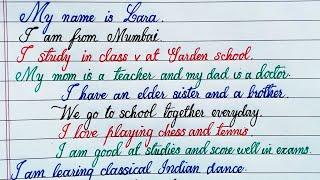 My name is Lara.
I am from Mumbai.
I study in class v at Garden school.
My mom is a teacher and my dad is a doctor.
I have an elder sister and a brother.
We go to school together everyday.
I love playing chess and tennis.
I am good at studies and score well in exams.
I am learing classical Indian dance.